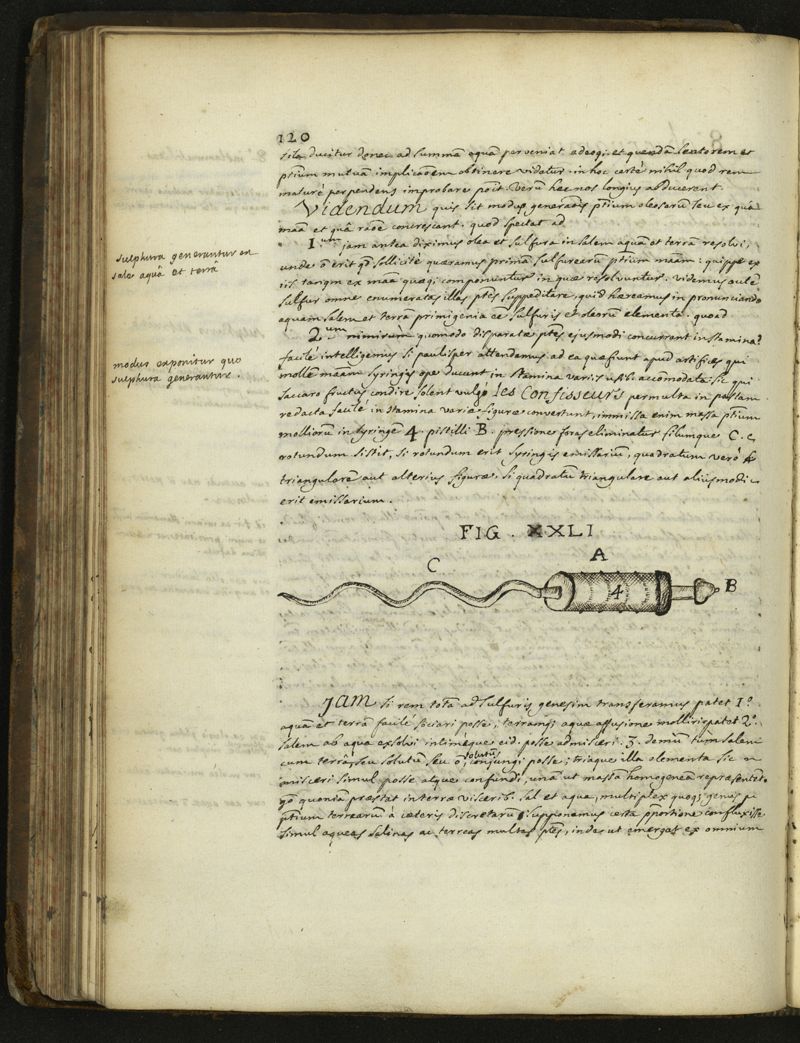 120
fila ducitur donec ad summã aquã perveniat adeoq; et quendã leutorem et
ptium mutuã implicaõem obtinere videtur. in hoc certè nihil quod rem
maturè perpendens improbare poit. Verũ hæc nos longiùs abducerent.
Videndum quis sit modus generaõis ptium oleosarũ seu ex quâ
maã et quâ raõe concrescant. quod spectat ad
1um jam antea diximus olea et sulfura in salem aquam et terrã resolvi,
unde õ erit qd sollicitè quæramus primã sulfurearũ ptium maãm: quippe ex
iis tanqm ex maã quæq; componuntur in quæ resolvuntur. videmus autẽ
sulfur omne enumeratas illas ptes suppeditare, quid hæreamus in pronunciando
aquam salem et terrã primigenia ee sulfuris et oleorũ elementa. quoad
2um nimirùm quomodo disparatæ ptes ejusmodi concurrant in stamina?
facilè intelligemus si paulisper attendemus ad ea quæ fiunt apud artifices qui
mollẽ maãm syringis ope ducunt in stamina variis usib; accõmodata sic qui
saccaro fructus condire solent vulgo les Confisseurs permulta in pastam
redacta facilè in stamina variæ figuræ convertunt, immissa enim massa ptium
molliorũ in syringẽ 4. pistilli B. pressione foras eliminatur filumque C. c.
rotundum sistit, si rotundum erit syringis emissarium, quadratum verò
triangularem aut alterius figuræ, si quadratũ triangulare aut aliusmodi
erit emissarium.
sulphura generantur en
sale aquâ et terrâ
modus exponitur quo
sulphura generantur.
FIG. XXLI
A
C
4
B
Jam si rem totã ad sulfuris genesim transferamus patet 1o
aquam et terrã facilè sociari posse, terramq; aquæ affusione molliri patet 2o.
salem ab aqua exsolvi intimèque eid. posse admisceri. 3. demũ tùm salem
cum terrâ, seu solutũ seu õ solutũ conjungi posse; triaque illa elementa sic
misceri simul posse atque confundi, unâ ut massam homogeneã repræsentet.
qõ quoniã præstat in terræ viscerib; sal et aqua, multiplex quoq; genus
ptium terrearũ à cæteris discretarũ supponamus certa pportione confluxisse
simul aqueas salinas ac terreas multas ptes, inde ut emergat ex omnium